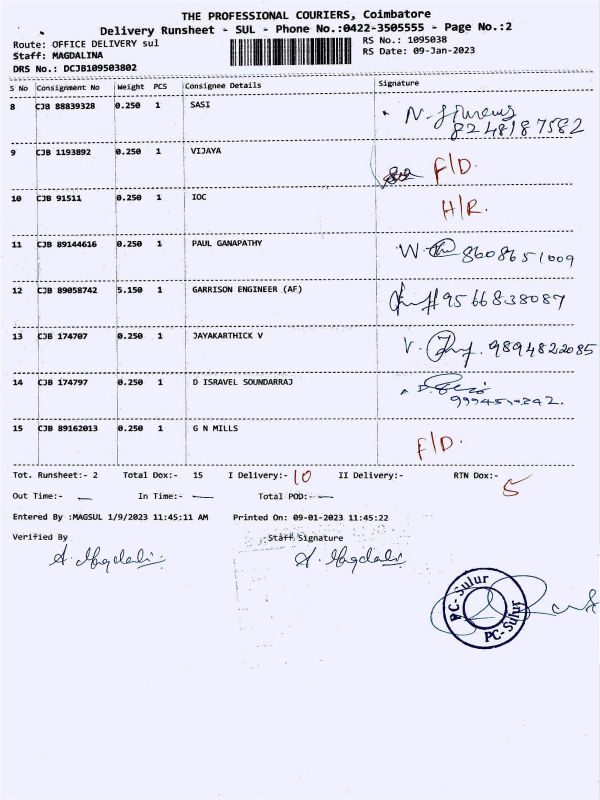 THE PROFESSIONAL COURIERS, Coimbatore
Delivery Runsheet - SUL - Phone No.:0422-3505555 - Page No.:2
Route: OFFICE DELIVERY sul RS No.: 1095038
Staff: MAGDALINA RS Date: 09-Jan-2023
DRS No.: DCJB109503802
S No Consignment No Weight PCS Consignee Details Signature
8 CJB 88839328 0.250 1 SASI
8248187582
9 CJB 1193892 0.250 1 VIJAYA F/D.
10 CJB 91511 0.250 1 IOC H/R.
11 CJB 89144616 0.250 1 PAUL GANAPATHY 8608651009
12 CJB 89058742 5.150 1 GARRISON ENGINEER (AF) 9566838087
13 CJB 174707 0.250 1 JAYAKARTHICK V V. 9894822085
14 CJB 174797 0.250 1 D ISRAVEL SOUNDARRAJ
15 CJB 89162013 0.250 1 G N MILLS F/D.
Tot. Runsheet:- 2 Total Dox:- 15 I Delivery:- 10 II Delivery:- RTN Dox:- 5
Out Time:- — In Time:- — Total POD:- —
Entered By :MAGSUL 1/9/2023 11:45:11 AM Printed On: 09-01-2023 11:45:22
Verified By Staff Signature
A. Magdali A. Magdali
PC-Sulur
PC-Sulur